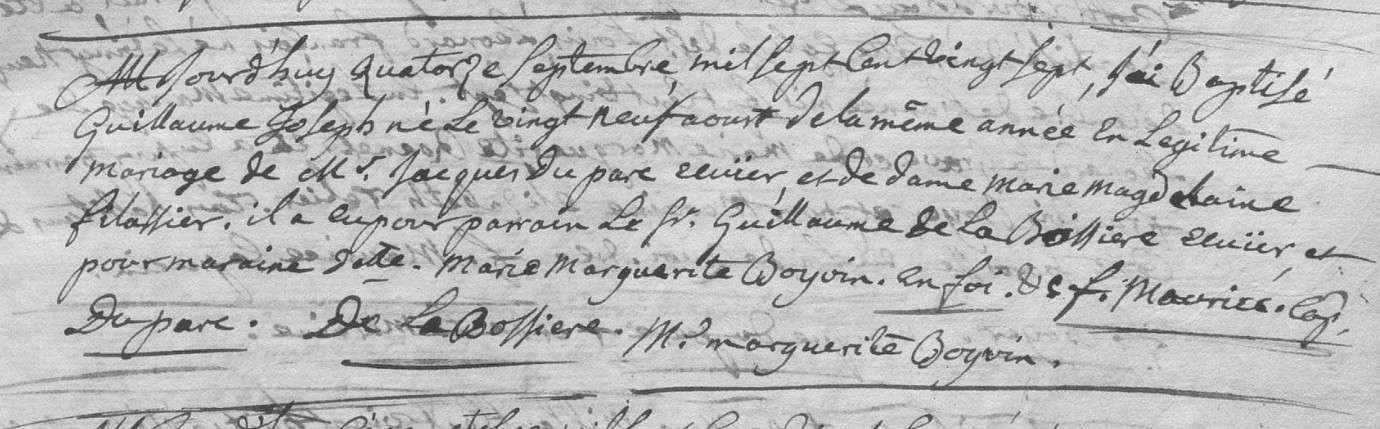 Aujourd'huy quatorze septembre mil sept cent vingt sept, j'ai Baptisé
Guillaume Joseph né Le vingt neuf aoust de la même année En Legitime
mariage de Mr. Jacques Du parc ecuiier, et de dame marie magdelaine
filassier. il a eu pour parrain Le Sr. Guillaume de la Boissiere ecuiier et
pour maraine dlle. marie marguerite Boyvin. en foi. f. Maurice. Cap.
Du parc. De La Bossiere. M. marguerite Boyvin.